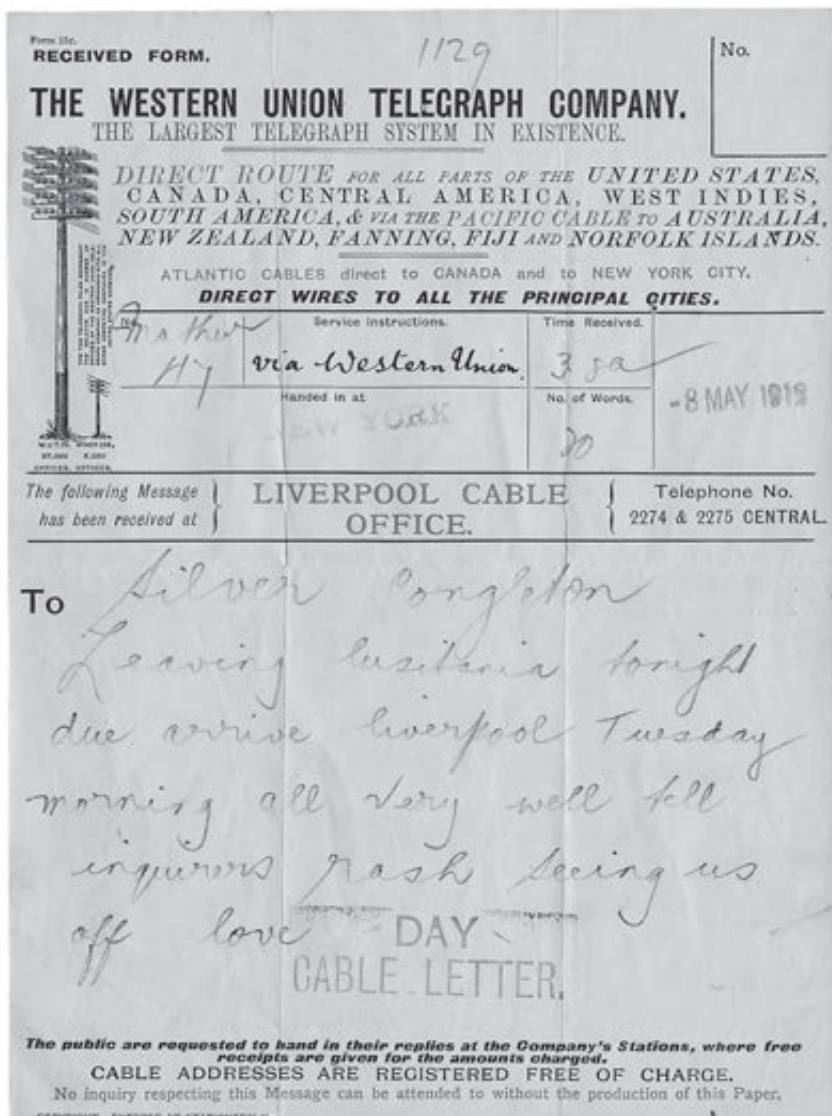 Form 11c.
RECEIVED FORM.
1129
No.
THE WESTERN UNION TELEGRAPH COMPANY.
THE LARGEST TELEGRAPH SYSTEM IN EXISTENCE.
DIRECT ROUTE FOR ALL PARTS OF THE UNITED STATES,
CANADA, CENTRAL AMERICA, WEST INDIES,
SOUTH AMERICA, & VIA THE PACIFIC CABLE TO AUSTRALIA,
NEW ZEALAND, FANNING, FIJI AND NORFOLK ISLANDS.
ATLANTIC CABLES direct to CANADA and to NEW YORK CITY.
DIRECT WIRES TO ALL THE PRINCIPAL CITIES.
No.
Service Instructions.
Time Received.
via Western Union
Handed in at
No. of Words.
-8 MAY
NEW YORK
20
The following Message
has been received at
LIVERPOOL CABLE
OFFICE.
Telephone No.
2274 & 2275 CENTRAL.
To Silver Congleton
Leaving lusitania tonight
due arrive liverpool Tuesday
morning all very well tell
inquirers rash seeing us
off love
DAY
CABLE LETTER.
The public are requested to hand in their replies at the Company's Stations, where free
receipts are given for the amounts charged.
CABLE ADDRESSES ARE REGISTERED FREE OF CHARGE.
No inquiry respecting this Message can be attended to without the production of this Paper.